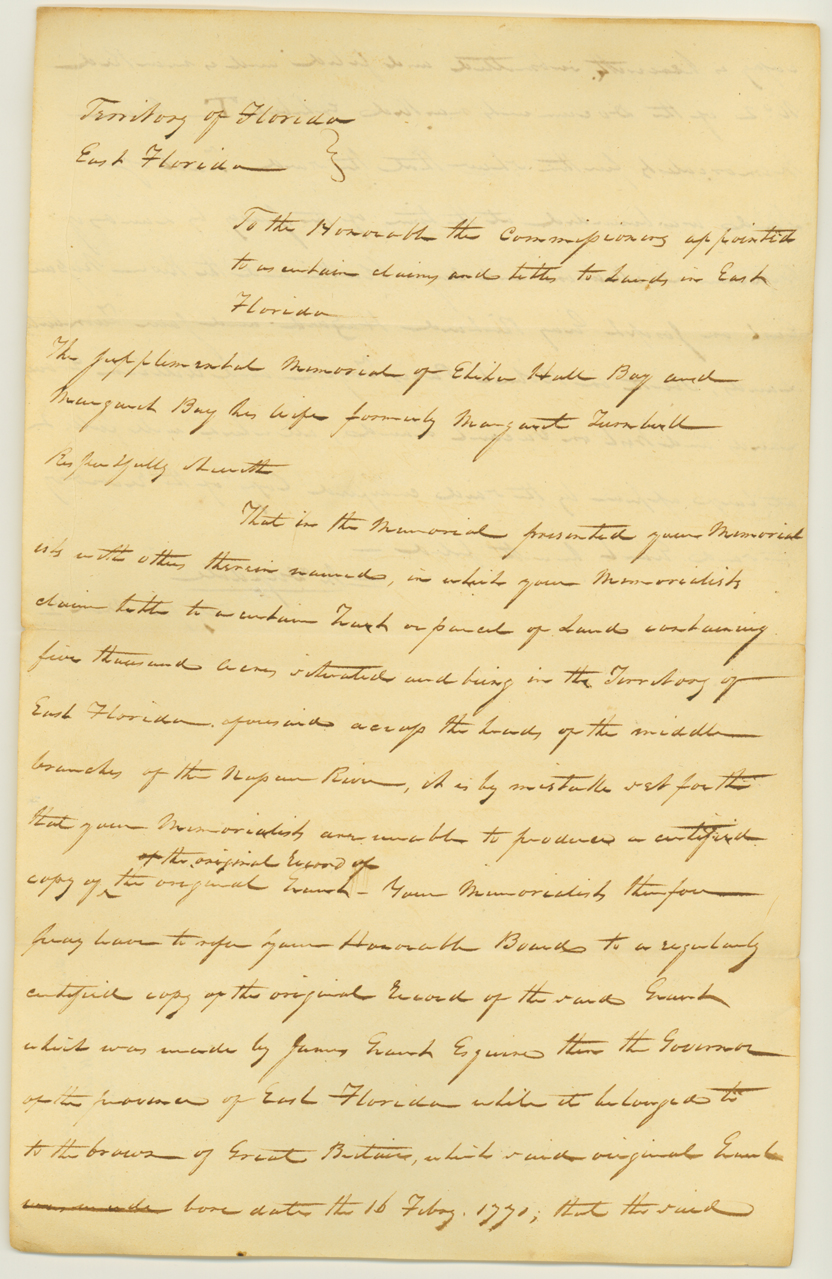 Territory of Florida
East Florida
To the Honorable the Commissioners appointed
to ascertain claims and titles to Lands in East
Florida
The supplemental Memorial of Elihu Hall Bay and
Margaret Bay his wife formerly Margaret Turnbull
Respectfully sheweth
That in the Memorial presented your Memorial
ists with others therein named, in which your Memorialists
claim title to a certain Tract or parcel of Land containing
five thousand acres situated and being in the Territory of
East Florida aforesaid across the heads of the middle
branches of the Napau River, it is by mistake set forth
that your Memorialists are unable to produce a certified
of the original Record of
copy of the original Grant - Your Memorialists therefore
pray leave to refer your Honorable Board to a regularly
certified copy of the original Record of the said Grant
which was made by James Grant Esquire then the Governor
of the province of East Florida while it belonged to
to the Crown of Great Britain, which said original Grant
was made bore date the 16 Feby. 1771; that the said